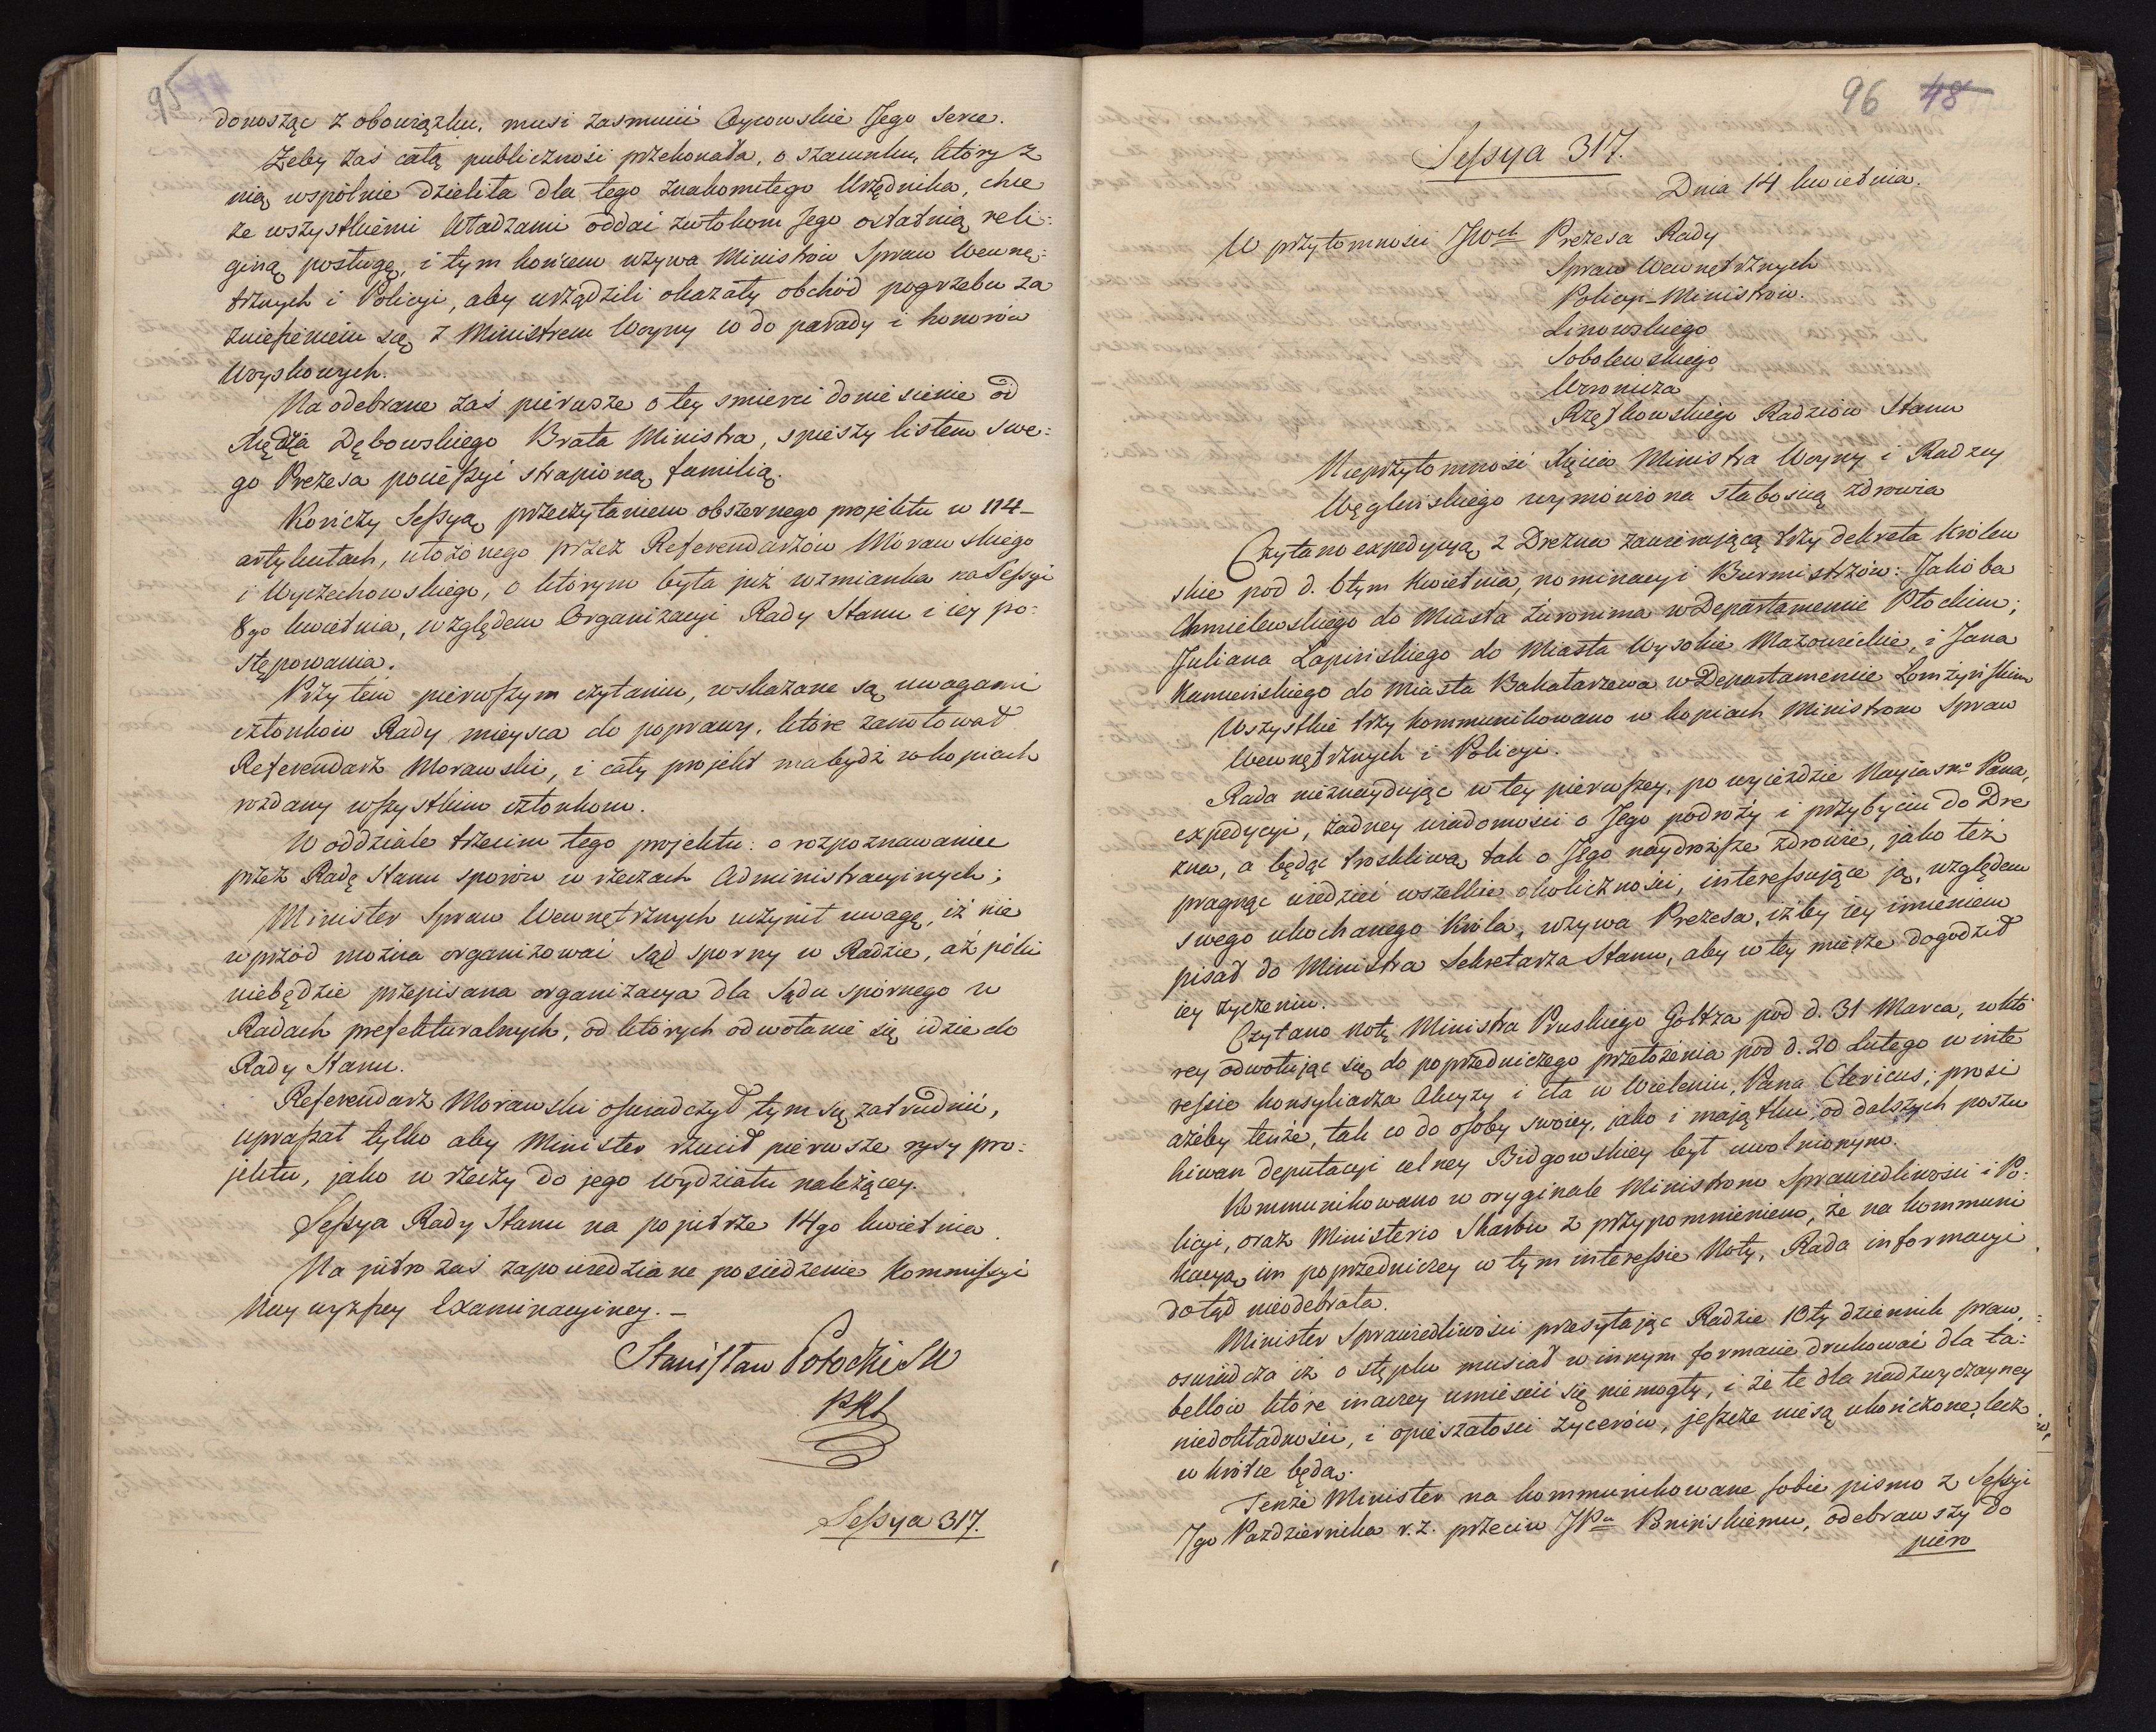 95
donosząc z obowiązku, musi zasmucić Oycowskie Jego serce.
Żeby zaś całą publiczność przekonała, o szacunku, który z
nią wspólnie dzieliła dla tego znakomitego Urzędnika, chce
ze wszystkiemi Władzami oddać zwłokom Jego ostatnią reli:
giną posługę, i tym końcem wzywa Ministrów Spraw Wewnę:
trznych i Policyi, aby urządzili okazały obchód pogrzebu za
zniesieniem się z Ministrem Woyny co do parady i honorów
Woyskowych.
Na odebrane zaś pierwsze o tey smierci doniesienie od
Xiędza Dębowskiego Brata Ministra, spieszy listem swe:
go Prezesa pocieszyć strapioną familią.
Kończy Sessyą przeczytaniem obszernego projektu w 114_
artykułach, ułożonego przez Referendarzów Morawskiego
i Wyczechowskiego, o którym była już wzmianka na Sessyi
8go kwietnia, względem Organizacyi Rady Stanu i iey po:
stępowania.
Przy tém pierwszym czytaniu, wskazane są uwagami
członków Rady mieysca do poprawy, które zanotował
Referendarz Morawski, i cały projekt ma bydź w kopiach
rozdany wszystkim członkom.
W oddziale trzecim tego projektu: o rozpoznawaniu
przez Radę Stanu sporów w rzeczach Administracyinych;
Minister Spraw Wewnętrznych uczynił uwagę, iż nie
wprzód można organizować Sąd sporny w Radzie, aż póki
niebędzie przepisana organizacya dla Sądu spornego w
Radach prefekturalnych, od których odwołanie się idzie do
Rady Stanu.
Referendarz Morawski oswiadczył tym się zatrudnić,
upraszał tylko aby Minister rzucił pierwsze rysy pro:
jektu, jako w rzeczy do jego Wydziału należącey.
Sessya Rady Stanu na pojutrze 14go kwietnia.
Na jutro zaś zapowiedziane posiedzenie Kommissyi
Naywyższey Examinacyiney. _
Stanisław Potocki SW
PRS
Sessya 317.
96 48
Sessya 317.
Dnia 14 kwietnia.
W przytomności JWch Prezesa Rady
Spraw Wewnętrznych
Policyi _ Ministrów.
Linowskiego
Sobolewskiego
Woronicza
Rzętkowskiego Radzców Stanu
Nieprzytomność Xięcia Ministra Woyny i Radzcy
Węgleńskiego wymówiona słabością zdrowia
Czytano expedycyą z Drezna zawierającą trzy dekreta Królew
skie pod d. 6tym Kwietnia, nominacyi Burmistrzów: Jakóba
Chmielewskiego do Miasta Żuromina w Departamencie Płockim;
Juliana Łapińskiego do Miasta Wysokie Mazowieckie, i Jana
Kamieńskiego do miasta Bakałarzewa w Departamencie Łomżyńskim
Wszystkie trzy kommunikowano w kopiach Ministrom Spraw
Wewnętrznych i Policyi.
Rada nieznaydując w tey pierwszey, po wyieździe Nayiaśno Pana,
expedycyi, żadney wiadomości o Jego podróży i przybyciu do Dre
zna, a będąc troskliwą tak o Jego naydroższe zdrowie, jako też
pragnąc wiedzieć wszelkie okoliczności, interessujące ją, względem
swego ukochanego Króla, wzywa Prezesa, iżby iey imieniem
pisał do Ministra Sekretarza Stanu, aby w tey mierze dogodził
iey życzeniu.
Czytano notę Ministra Pruskiego Goltza pod d. 31 Marca, w któ
rey odwołując się do poprzedniczego przełożenia pod d. 20 Lutego w inte
ressie konsyliarza Akcyzy i cła w Wieleniu, Pana Clericus; prosi
ażeby tenże, tak co do osoby swoiey, jako i majątku, od dalszych poszu
kiwań deputacyi celney Bidgowskiey był uwolnionym.
Kommunikowano w oryginale Ministrom Sprawiedliwości i Po:
licyi, oraz Ministerio Skarbu z przypomnieniem, że na kommuni
kacyą im poprzedniczey w tym interessie Noty, Rada informacyi
dotąd nieodebrała.
Minister Sprawiedliwości przesyłając Radzie 10ty dziennik praw,
oswiadcza iż o stęplu musiał w innym formacie drukować dla ta:
bellów które inaczey umieścić się niemogły, i że te dla nadzwyczayney
niedokładności, i opieszałości zycerów, jeszcze niesą ukończone, lecz
wkrótce będą.
Tenże Minister na kommunikowane sobie pismo z Sessyi
7go Października r.z. przeciw JPu Ponińskiemu, odebrawszy do
piéro